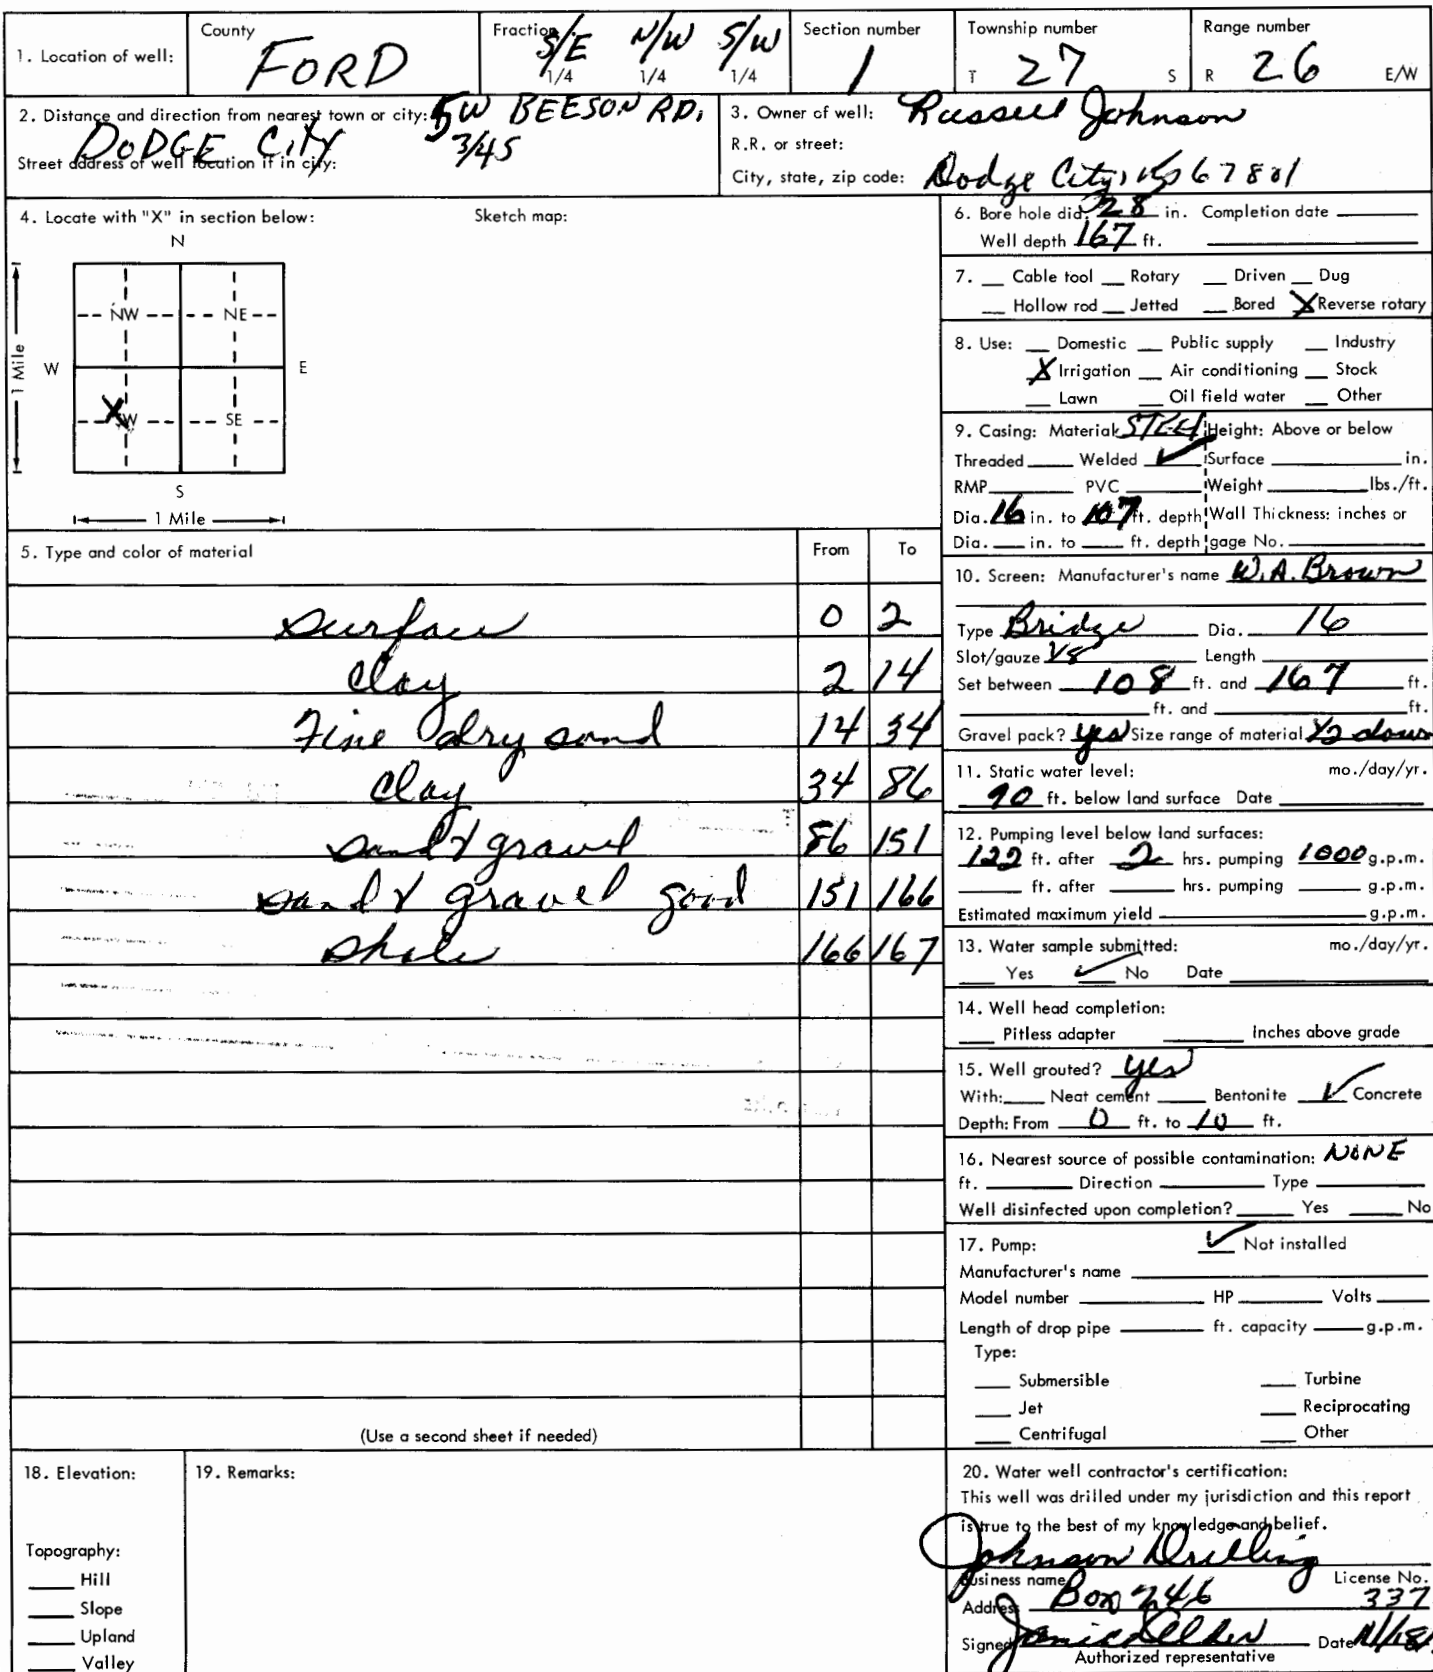 1. Location of well: County FORD Fraction S/E 1/4 N/W 1/4 S/W 1/4 Section number 1 Township number T 27 S Range number R 26 E/W
2. Distance and direction from nearest town or city: 5W BEESON RD.
DODGE CITY 3/4S
Street address of well location if in city:
3. Owner of well: Russell Johnson
R.R. or street:
City, state, zip code: Dodge City, Ks 67801
4. Locate with "X" in section below: Sketch map:
N
NW NE
W E
1 Mile
X
SW SE
S
1 Mile
5. Type and color of material From To
surface 0 2
clay 2 14
Fine dry sand 14 34
clay 34 86
sand & gravel 86 151
sand & gravel good 151 166
shale 166 167
(Use a second sheet if needed)
6. Bore hole dia. 28 in. Completion date
Well depth 167 ft.
7. Cable tool Rotary Driven Dug
Hollow rod Jetted Bored X Reverse rotary
8. Use: Domestic Public supply Industry
X Irrigation Air conditioning Stock
Lawn Oil field water Other
9. Casing: Material STEEL Height: Above or below
Threaded Welded ✓ Surface in.
RMP PVC Weight lbs./ft.
Dia. 16 in. to 107 ft. depth Wall Thickness: inches or
Dia. in. to ft. depth gage No.
10. Screen: Manufacturer's name W.A. Brown
Type Bridge Dia. 16
Slot/gauze 1/8 Length
Set between 108 ft. and 167 ft.
ft. and ft.
Gravel pack? yes Size range of material 1/2 down
11. Static water level: mo./day/yr.
90 ft. below land surface Date
12. Pumping level below land surfaces:
122 ft. after 2 hrs. pumping 1000 g.p.m.
ft. after hrs. pumping g.p.m.
Estimated maximum yield g.p.m.
13. Water sample submitted: mo./day/yr.
Yes ✓ No Date
14. Well head completion:
Pitless adapter Inches above grade
15. Well grouted? yes
With: Neat cement Bentonite ✓ Concrete
Depth: From 0 ft. to 10 ft.
16. Nearest source of possible contamination: NONE
ft. Direction Type
Well disinfected upon completion? Yes No
17. Pump: ✓ Not installed
Manufacturer's name
Model number HP Volts
Length of drop pipe ft. capacity g.p.m.
Type:
Submersible Turbine
Jet Reciprocating
Centrifugal Other
18. Elevation:
Topography:
Hill
Slope
Upland
Valley
19. Remarks:
20. Water well contractor's certification:
This well was drilled under my jurisdiction and this report
is true to the best of my knowledge and belief.
Johnson Drilling
Business name License No.
Address Box 246 337
Signed Date
Authorized representative